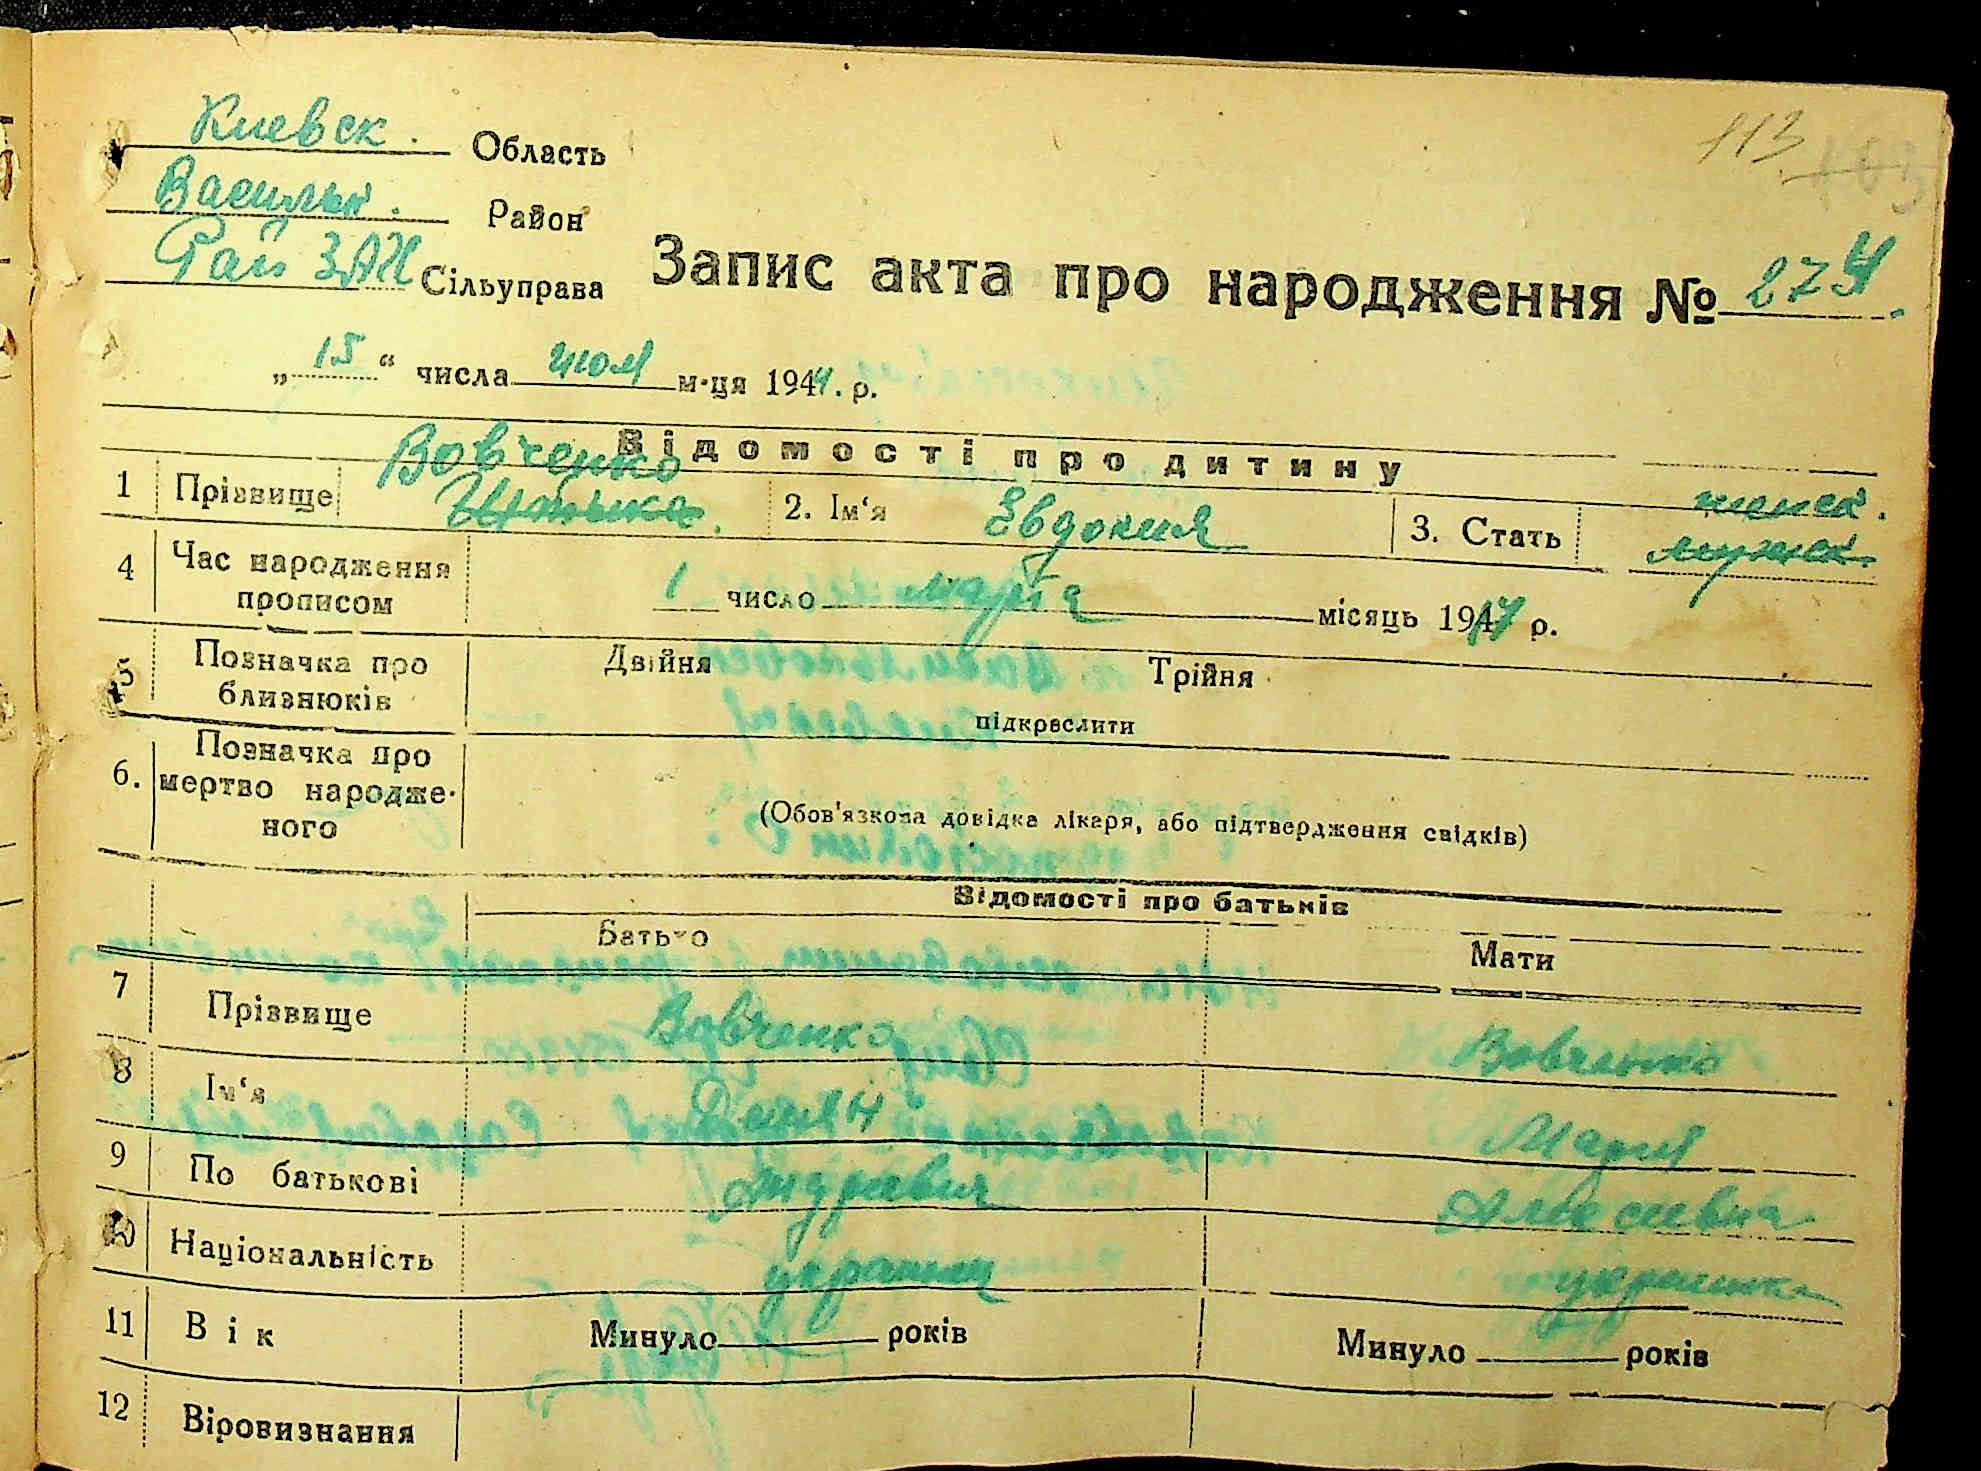 113
Киевск. Область
Васильк. Район
Рай ЗАГ Сільуправа
Запис акта про народження № 274.
„15“ числа июля м-ця 1944. р.
Відомості про дитину
Вовченко
1 Прізвище 2. Ім‘я Евдокия 3. Стать женск.
мужск.
4 Час народження прописом 1 число марта місяць 1944 р.
5 Позначка про близнюків Двійня Трійня
підкреслити
6. Позначка про мертво народже-
ного (Обов'язкова довідка лікаря, або підтвердження свідків)
Відомості про батьків
Батько Мати
7 Прізвище Вовченко Вовченко
8 Ім‘я Демян Мария
9 По батькові Алексеевна
10 Національність украинец украинка
11 Вік Минуло років Минуло років
12 Віровизнання